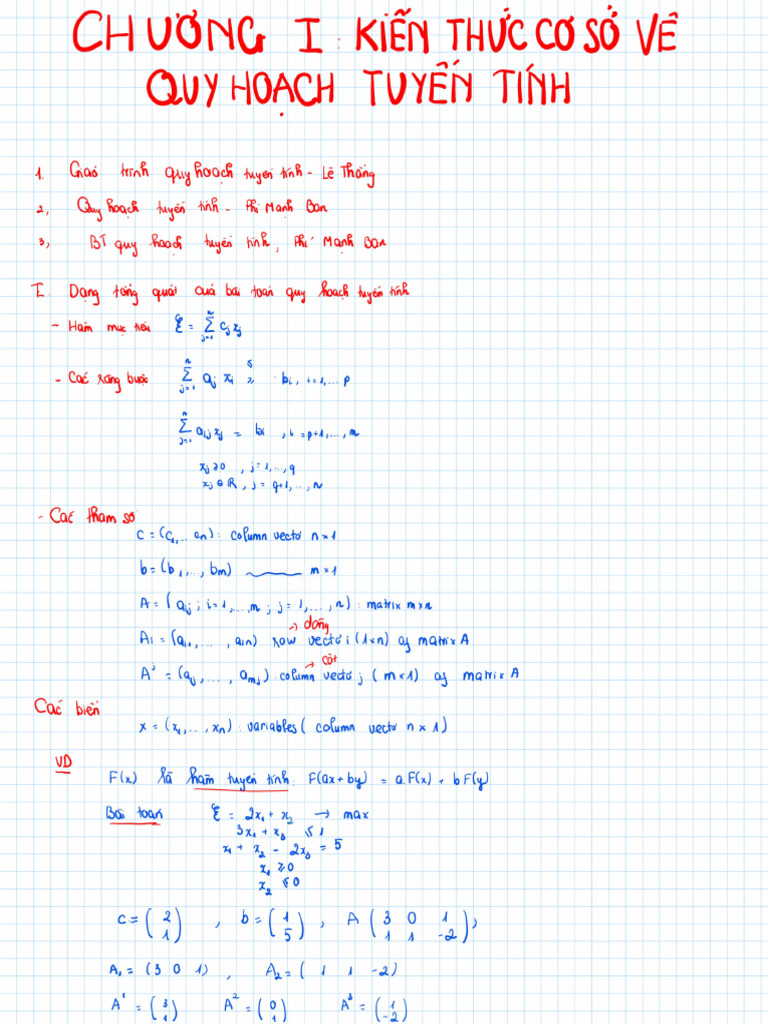 CHƯƠNG I : KIẾN THỨC CƠ SỞ VỀ
QUY HOẠCH TUYẾN TÍNH
1. Giáo trình quy hoạch tuyến tính - Lê Thăng
2, Quy hoạch tuyến tính - Phí Mạnh Ban
3, BT quy hoạch tuyến tính, Phí Mạnh Ban
I. Dạng tổng quát của bài toán quy hoạch tuyến tính
- Hàm mục tiêu ξ = Σ_{j=1}^{n} c_j x_j
- Các ràng buộc Σ_{j=1}^{n} a_j x_i ≤ ≥ b_i, i=1,... p
Σ_{j=1}^{n} a_{ij} x_j = b_i , i = p+1,..., m
x_j ≥ 0 , j = 1,..., q
x_j ∈ R, j = q+1, ..., n
- Các tham số
c = (c_1,... c_n): column vectơ n×1
b = (b_1,..., b_m) ——— m×1
A = ( a_{ij} ; i=1,...,m ; j=1,...,n) : matrix m×n
→ dòng
A_i = (a_{i1}, ..., a_{in}) row vectơ i (1×n) of matrix A
→ cột
A^j = (a_{ij}, ..., a_{mj}) : column vectơ j (m×1) of matrix A
Các biến
x = (x_1,..., x_n) : variables ( column vectơ n×1)
VD
F(x) là hàm tuyến tính: F(ax+by) = a.F(x) + bF(y)
Bài toán ξ = 2x_1 + x_2 → max
3x_1 + x_3 ≤ 1
x_1 + x_2 - 2x_3 = 5
x_1 ≥ 0
x_2 ≤ 0
c = (2 1) , b = (1 5) , A (3 0 1 1 1 -2),
A_1 = (3 0 1) , A_2 = ( 1 1 -2)
A^1 = (3 1) A^2 = (0 1) A^3 = (1 -2)